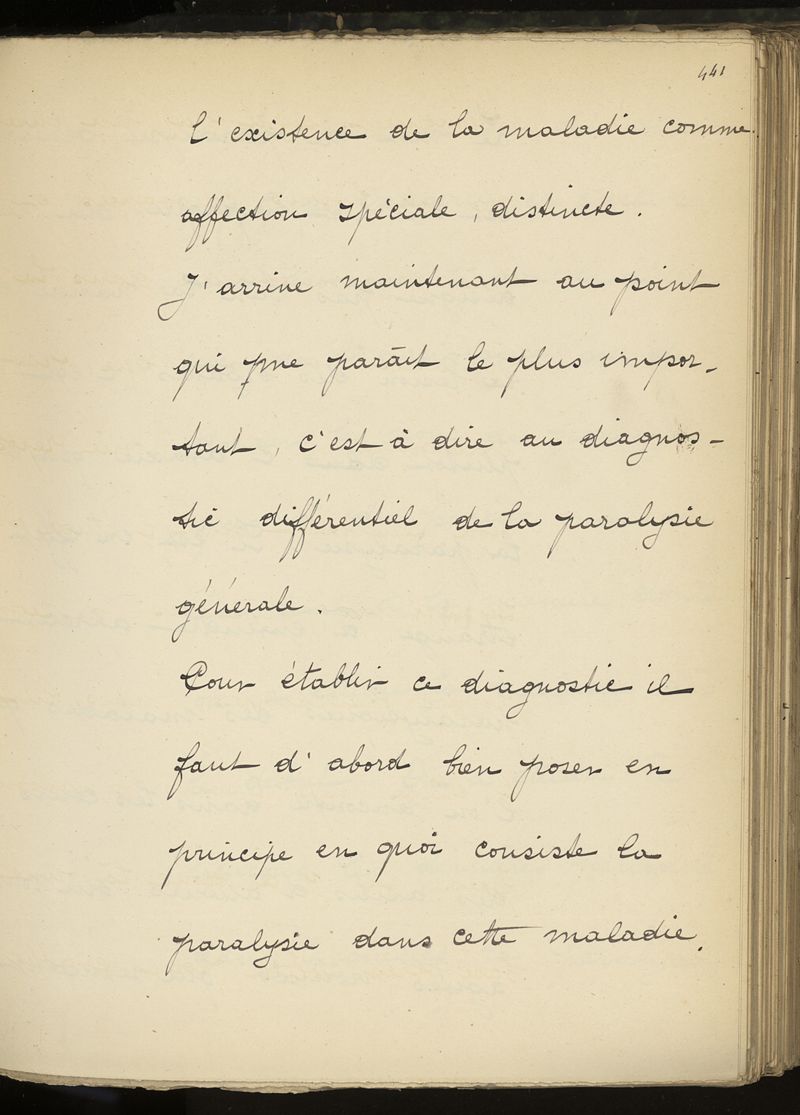 441
l'existence de la maladie comme
affection spéciale, distincte.
J'arrive maintenant au point
qui me paraît le plus impor-
tant, c'est à dire au diagnos-
tic différentiel de la paralysie
générale.
Pour établir ce diagnostic il
faut d'abord bien poser en
principe en quoi consiste la
paralysie dans cette maladie.